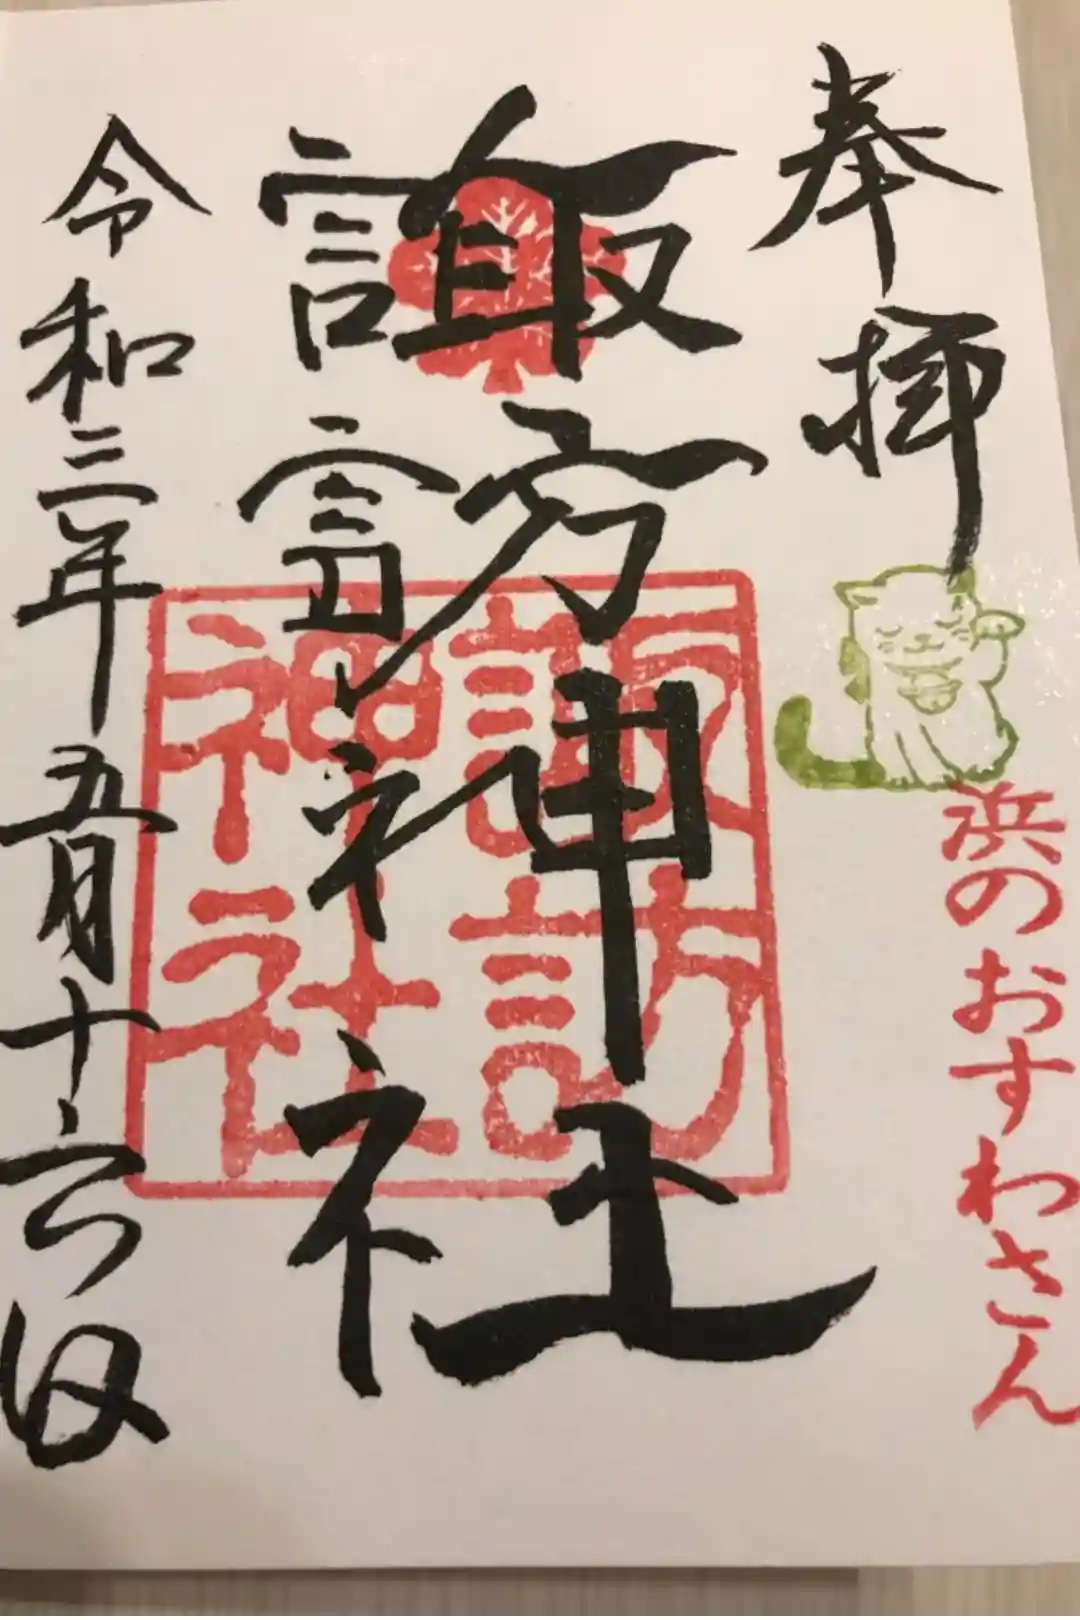 奉拝
浜のおすわさん
諏訪神社
諏訪神社
令和三年五月十六日